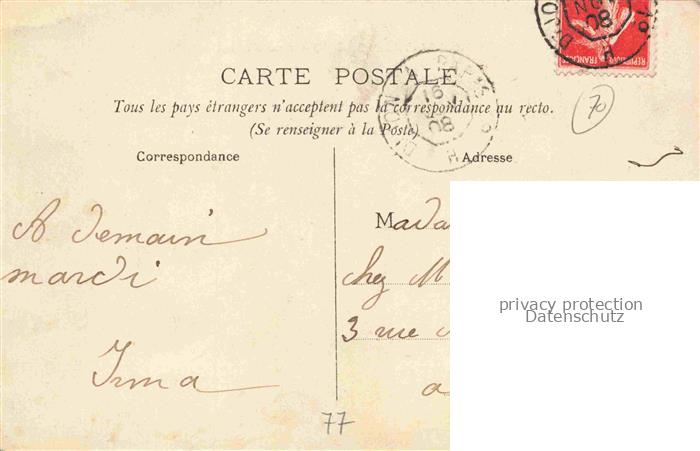 CARTE POSTALE
Tous les pays étrangers n'acceptent pas la correspondance au recto.
(Se renseigner à la Poste)
Correspondance
Adresse
A demain
mardi
Irma
Mada
chez M
3 rue
a
70
77
DIJON A PARIS
16
08
REPUBLIQUE FRANCAISE
privacy protection
Datenschutz